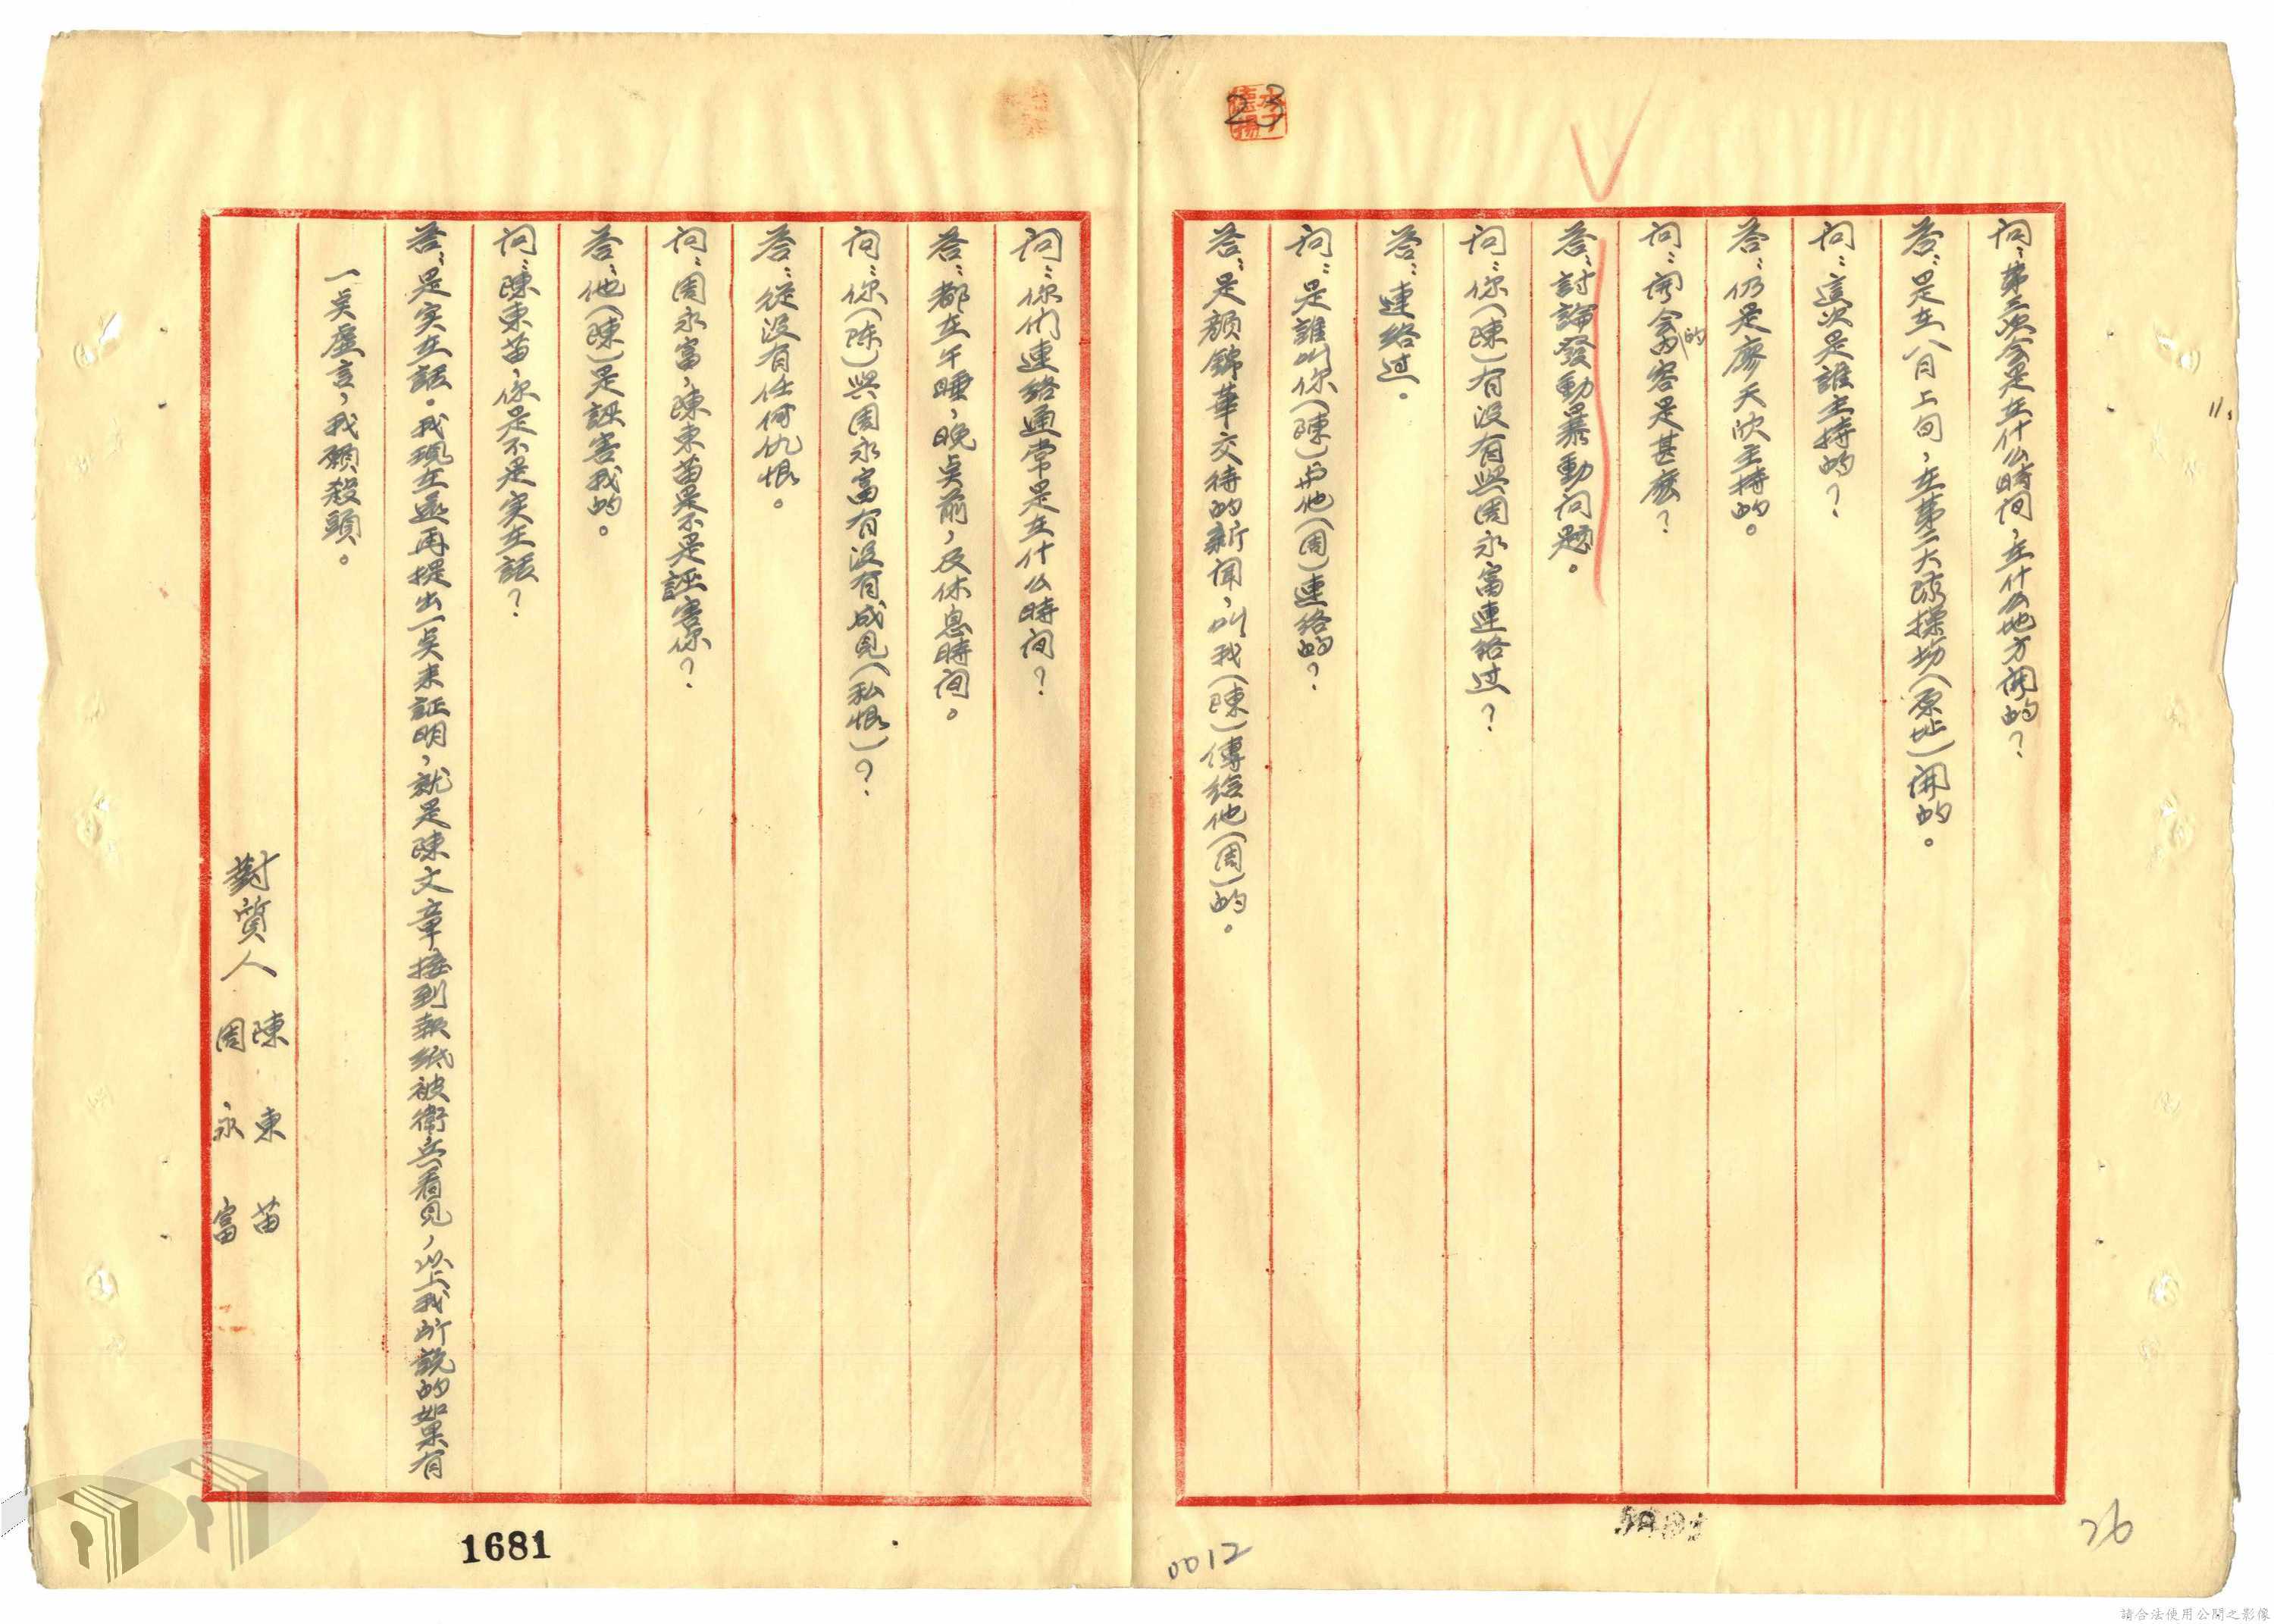 23
問：第三次会是在什么時间，在什么地方開的？
答：是在八月上旬，在第二大隊操場（原址）開的。
問：這次是誰主持的？
答：仍是廖天欣主持的。
問：開会的內容是甚麼？
答：討論發動暴動问题。
問：你（陳）有没有與周永富連絡过？
答：連絡过。
問：是誰叫你（陳）与他（周）連络的？
答：是顏錦華交待的新闻，叫我（陳）傳给他（周）的。
問：你们連络通常是在什么時间？
答：都在午睡，晚点前，及休息時间。
問：你（陈）與周永富有没有成見（私恨）？
答：從没有任何仇恨。
問：周永富，陳東苗是不是誣害你？
答：他（陳）是誣害我的。
問：陳東苗，你是不是实在話？
答：是实在話。我現在還再提出一点来証明，就是陳文章接到報紙被衛兵看見，以上我所說的如果有
一点虛言，我願殺頭。
對質人 陳東苗
周永富
1681
0012
26
請合法使用公開之影像